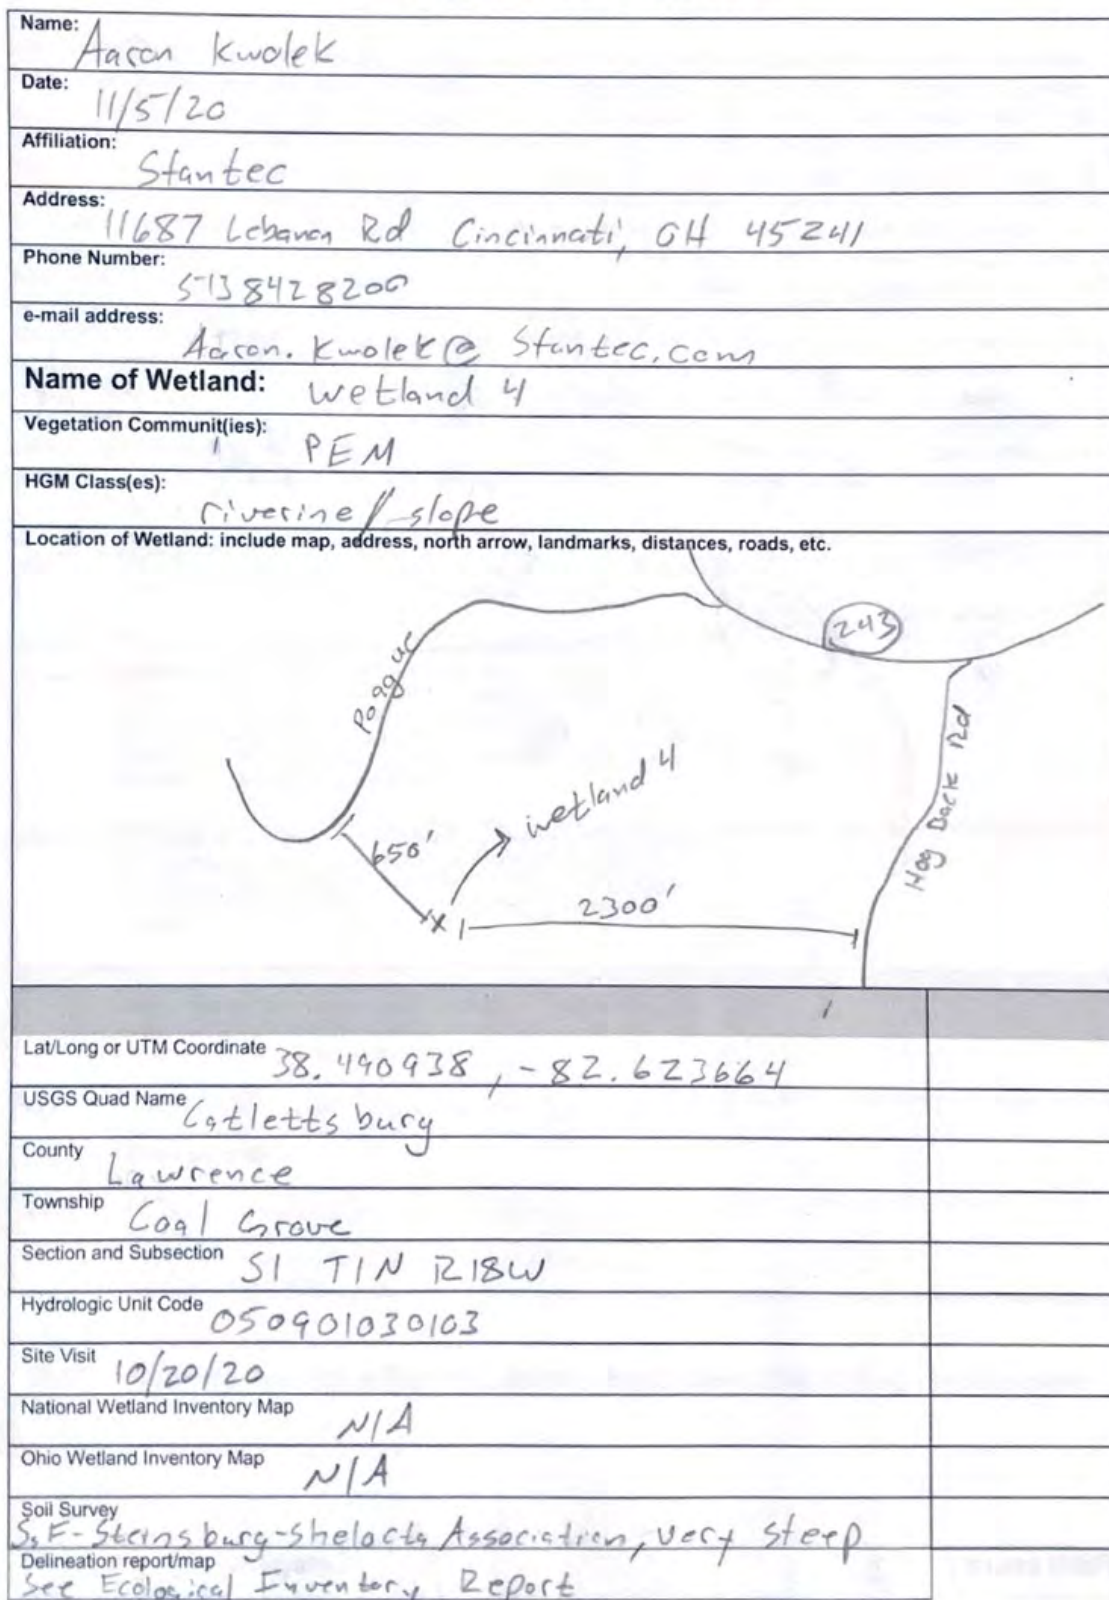 Name: Aaron Kwolek
Date: 11/5/20
Affiliation: Stantec
Address: 11687 Lebanon Rd Cincinnati, OH 45241
Phone Number: 5138428200
e-mail address: Aaron.Kwolek@Stantec.com
Name of Wetland: wetland 4
Vegetation Communit(ies): PEM
HGM Class(es): riverine/slope
Location of Wetland: include map, address, north arrow, landmarks, distances, roads, etc.
243
Hog Back Rd
wetland 4
650'
2300'
Lat/Long or UTM Coordinate 38.490938, -82.623664
USGS Quad Name Catlettsburg
County Lawrence
Township Coal Grove
Section and Subsection S1 T1N R18W
Hydrologic Unit Code 050901030103
Site Visit 10/20/20
National Wetland Inventory Map N/A
Ohio Wetland Inventory Map N/A
Soil Survey
SsF-Steinsburg-Shelocta Association, very steep
Delineation report/map
See Ecological Inventory Report